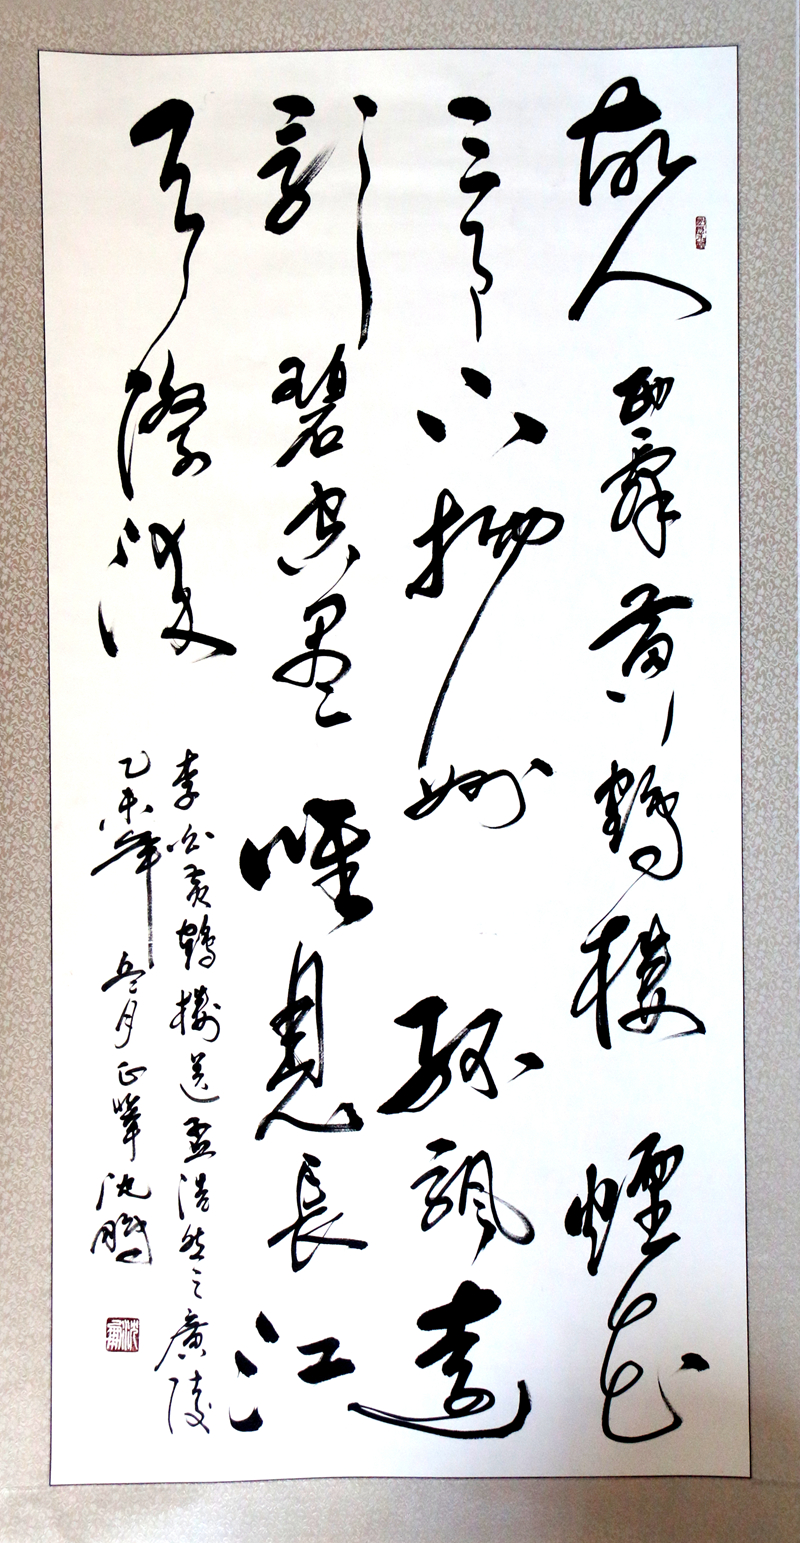 故人西辭黃鶴樓煙花
三月下揚州孤帆遠
影碧空盡唯見長江
天際流
李白黃鶴樓送孟浩然之廣陵
乙未年月沈鵬